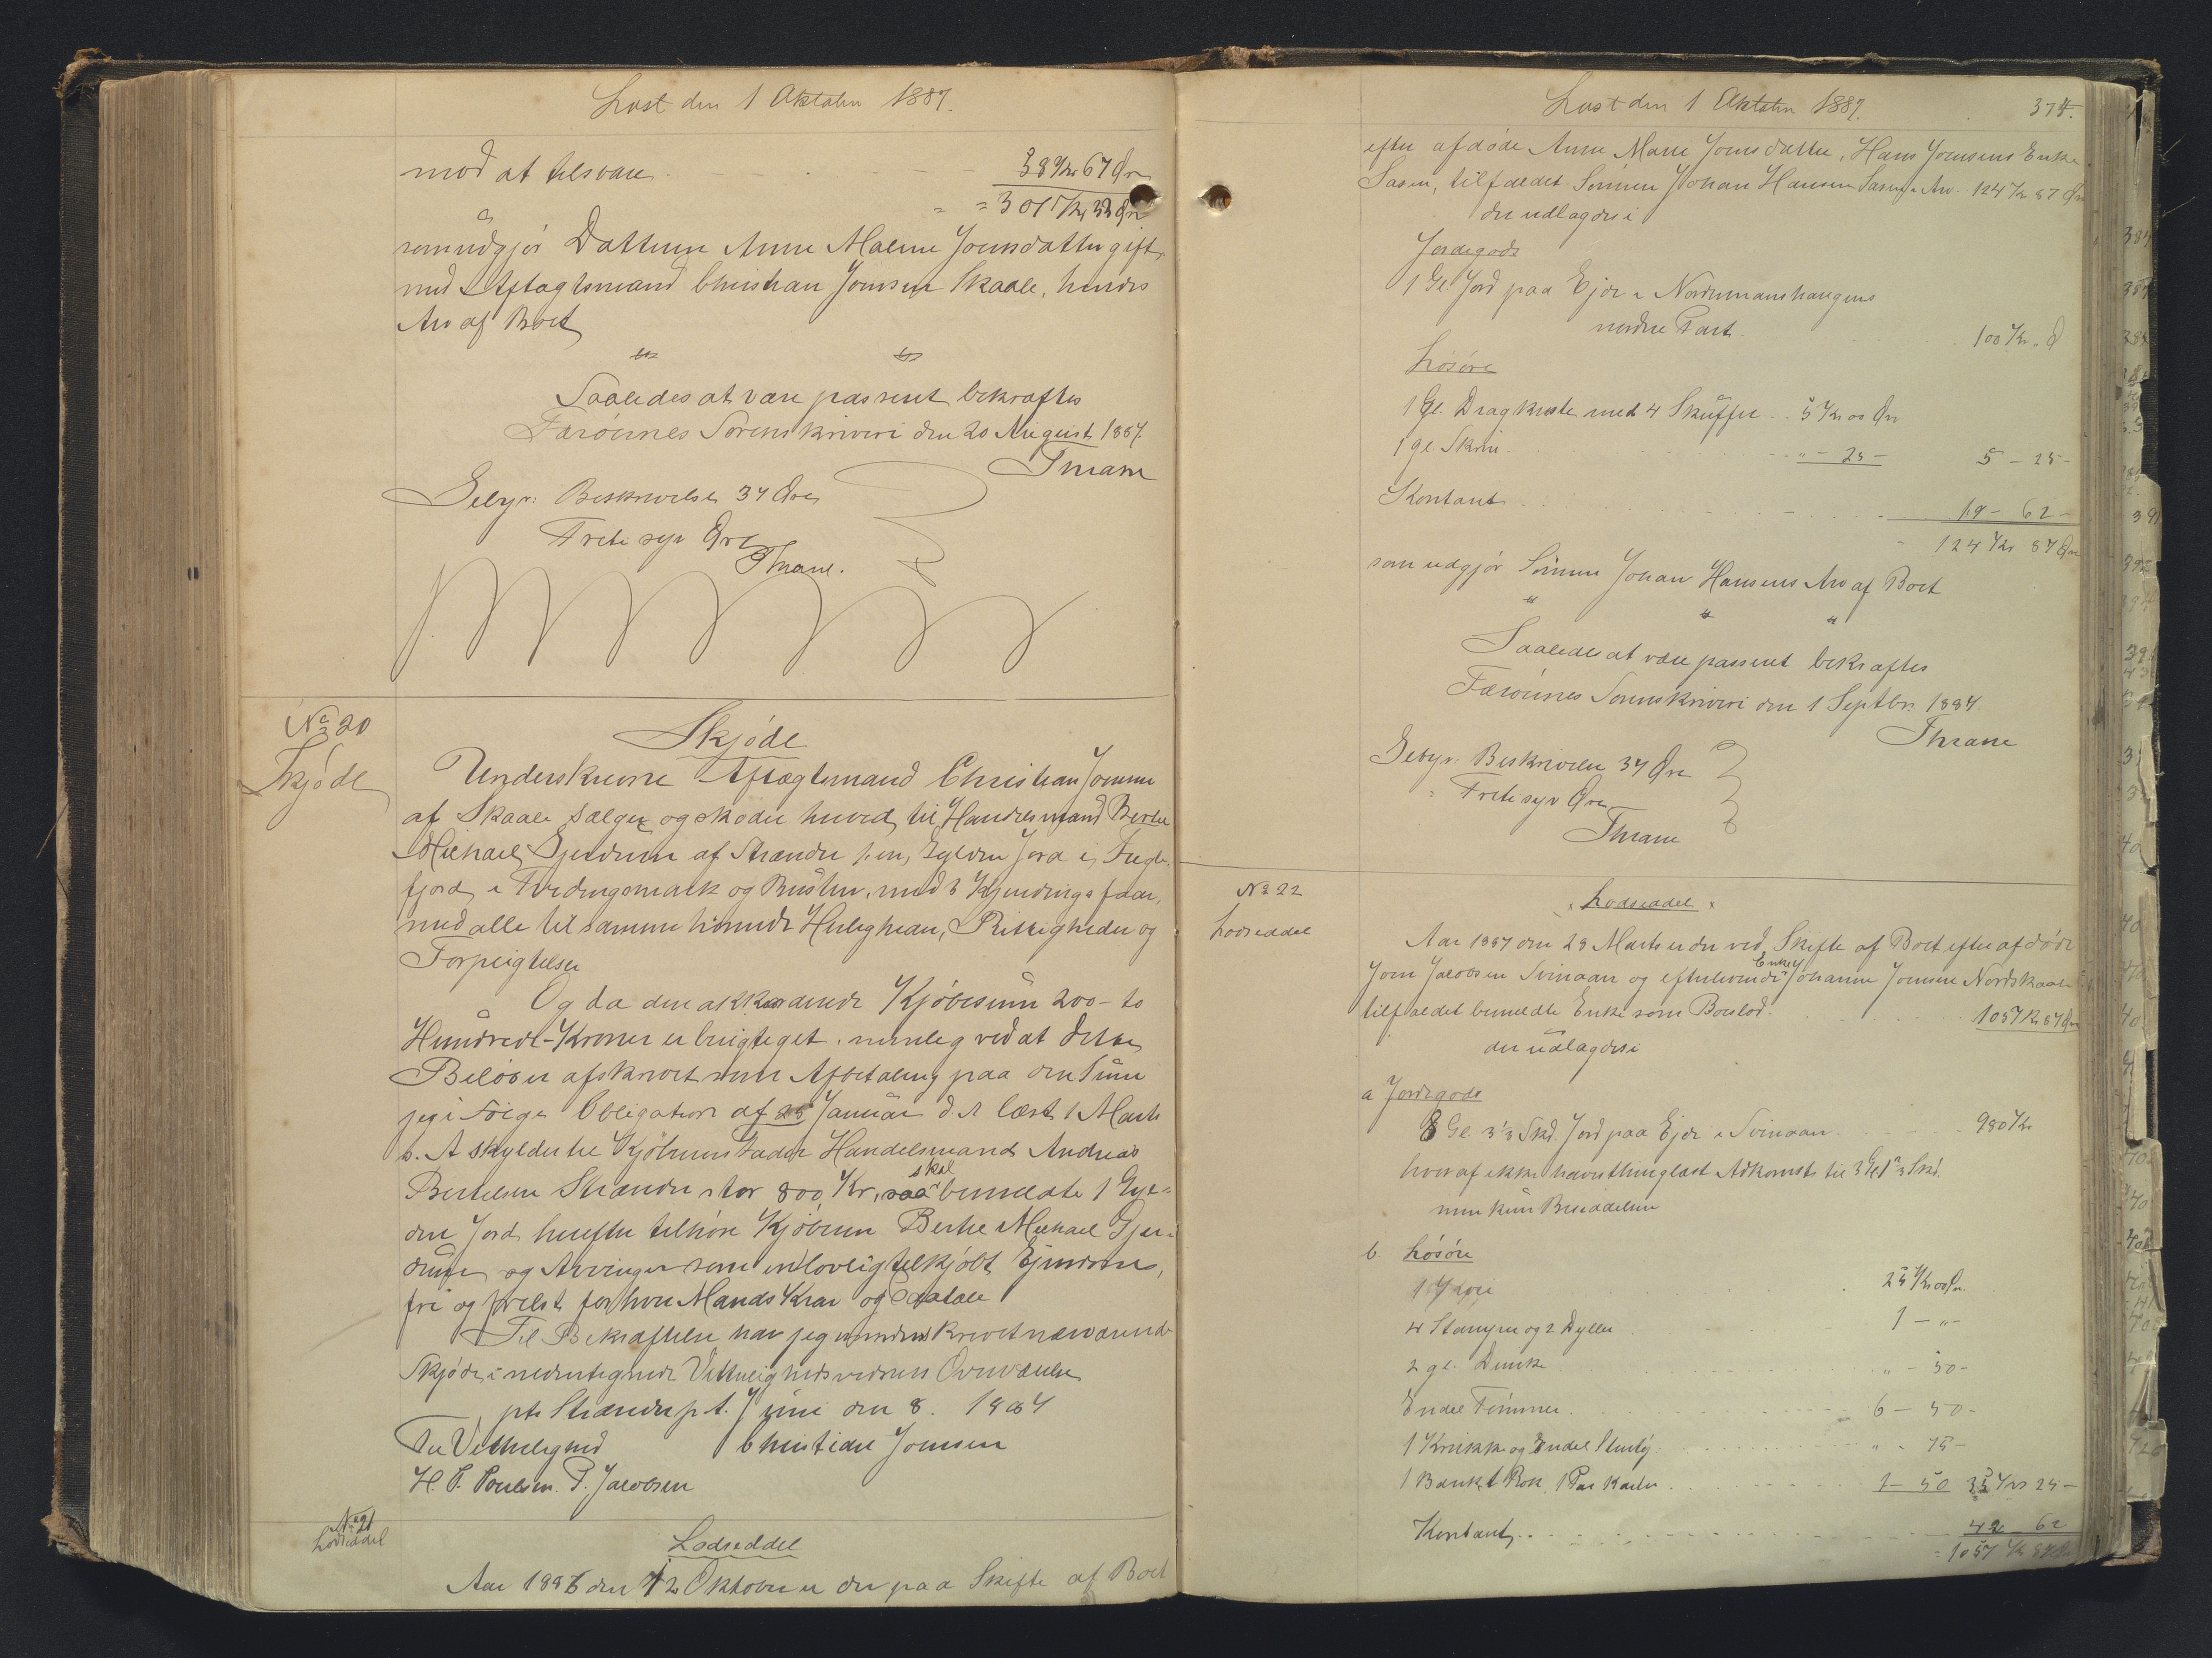 Læst den 1 Oktober 1887.
mod at tilsvare 38 Kr 67 Øre
= 301 Kr 33 Øre
som udgjør Datteren Anne Malene Joensdatter gift
med Aftægtsmand Christian Joensen Skaale, hendes
Arv af Boet
Saaledes at være passeret bekræftes
Færøernes Sorenskriveri den 20 August 1887.
Thrane
Gebyr: Beskrivelse 37 Øre
Treti syv Øre
Thrane.
No 20
Skjøde
Skjøde
Underskrevne Aftægtsmand Christian Joensen
af Skaale sælger og skøder herved til Handelsmand Berthel
Michael Gjerdrum af Strænder 1, en, Gylden Jord i Fugle-
fjord, i Tvedingsmark og Brüster, med 3 Kjendinge faar,
med alle til samme hørende Herligheder, Rettigheder og
Forpligtelser
Og da den akkorderede Kjøbesum 200 - to
Hundrede - Kroner er berigtiget, nemlig ved at dette
Beløb er afskrevet som Afbetaling paa den Sum
jeg ifølge Obligation af 25 Januar d. A læst 1 Marts
s. A skylder til Kjøberens Fader Handelsmand Andreas
Berthelsen Strænder stor 800 Kr, saa skal bemeldte 1 Gyl-
den Jord herefter tilhøre Kjøberen Berthel Michael Gjer-
drum og Arvinger som en lovlig tilkjøbt Ejendom,
fri og frelst for hver Mands Krav og Paatale
Til Bekræftelse har jeg underskrevet nærværende
Skjøde i nedentegnede Vitterlighedsvidners Overværelse
pt. Strænder p. t. Juni den 8. 1887
Til Vitterlighed Christian Joensen
H. P. Poulsen. P. Jacobsen
No 21
Lodseddel
Lodseddel
Aar 1886 den 12 Oktober er der paa Skifte af Boet
Læst den 1 Oktober 1887. 374.
efter afdøde Anne Marie Joensdatter, Hans Joensens Enke
Saxen, tilfaldet Sønnen Johan Hansen Saxen i Arv 124 Kr 87 Øre
der udlagdes i
Jordegods
1 Gl. Jord paa Ejde i Nordmanshaugens
nordre Part. 100 Kr. Ø
Løsøre
1 Gl. Dragkiste med 4 Skuffer 5 Kr 00 Øre
1 gl. Skrin " - 25 - 5 - 25 -
Kontant 19 - 62 -
124 Kr 87 Øre
som udgjør Sønnen Johan Hansens Arv af Boet
Saaledes at være passeret bekræftes
Færøernes Sorenskriveri den 1 Septbr. 1887
Thrane
Gebyr: Beskrivelse 37 Øre
Treti syv Øre
Thrane
No 22
Lodseddel
Lodseddel
Aar 1887 den 28 Marts er der ved Skifte af Boet efter afdøde
Joen Jacobsen Svinaaen og efterlevende Enke Johanne Joensen Nordskaale
tilfaldet bemeldte Enke som Boeslod. 1057 Kr 87 Øre
der udlagdes i
a Jordegods
8 Gl. 3 1/3 Skd. Jord paa Ejde i Svinaaen 980 Kr
hvoraf ikke haves thinglæst Adkomst til 3 Gl 1 2/3 Skd.
men kun Beseddelser
b Løsøre
1 Kvie 25 Kr 00 Øre
4 Stamper og 2 Dyller 1 - " -
2 gl. Dunke " - 50 -
Endel Tømmer. 6 - 50 -
1 Krukke og Endel Stentøj " - 75 -
1 Bænk 1 Rok, 1 Par Karter 1 - 50 35 Kr 25 -
Kontant 42 - 62
= 1057 Kr 87 Øre